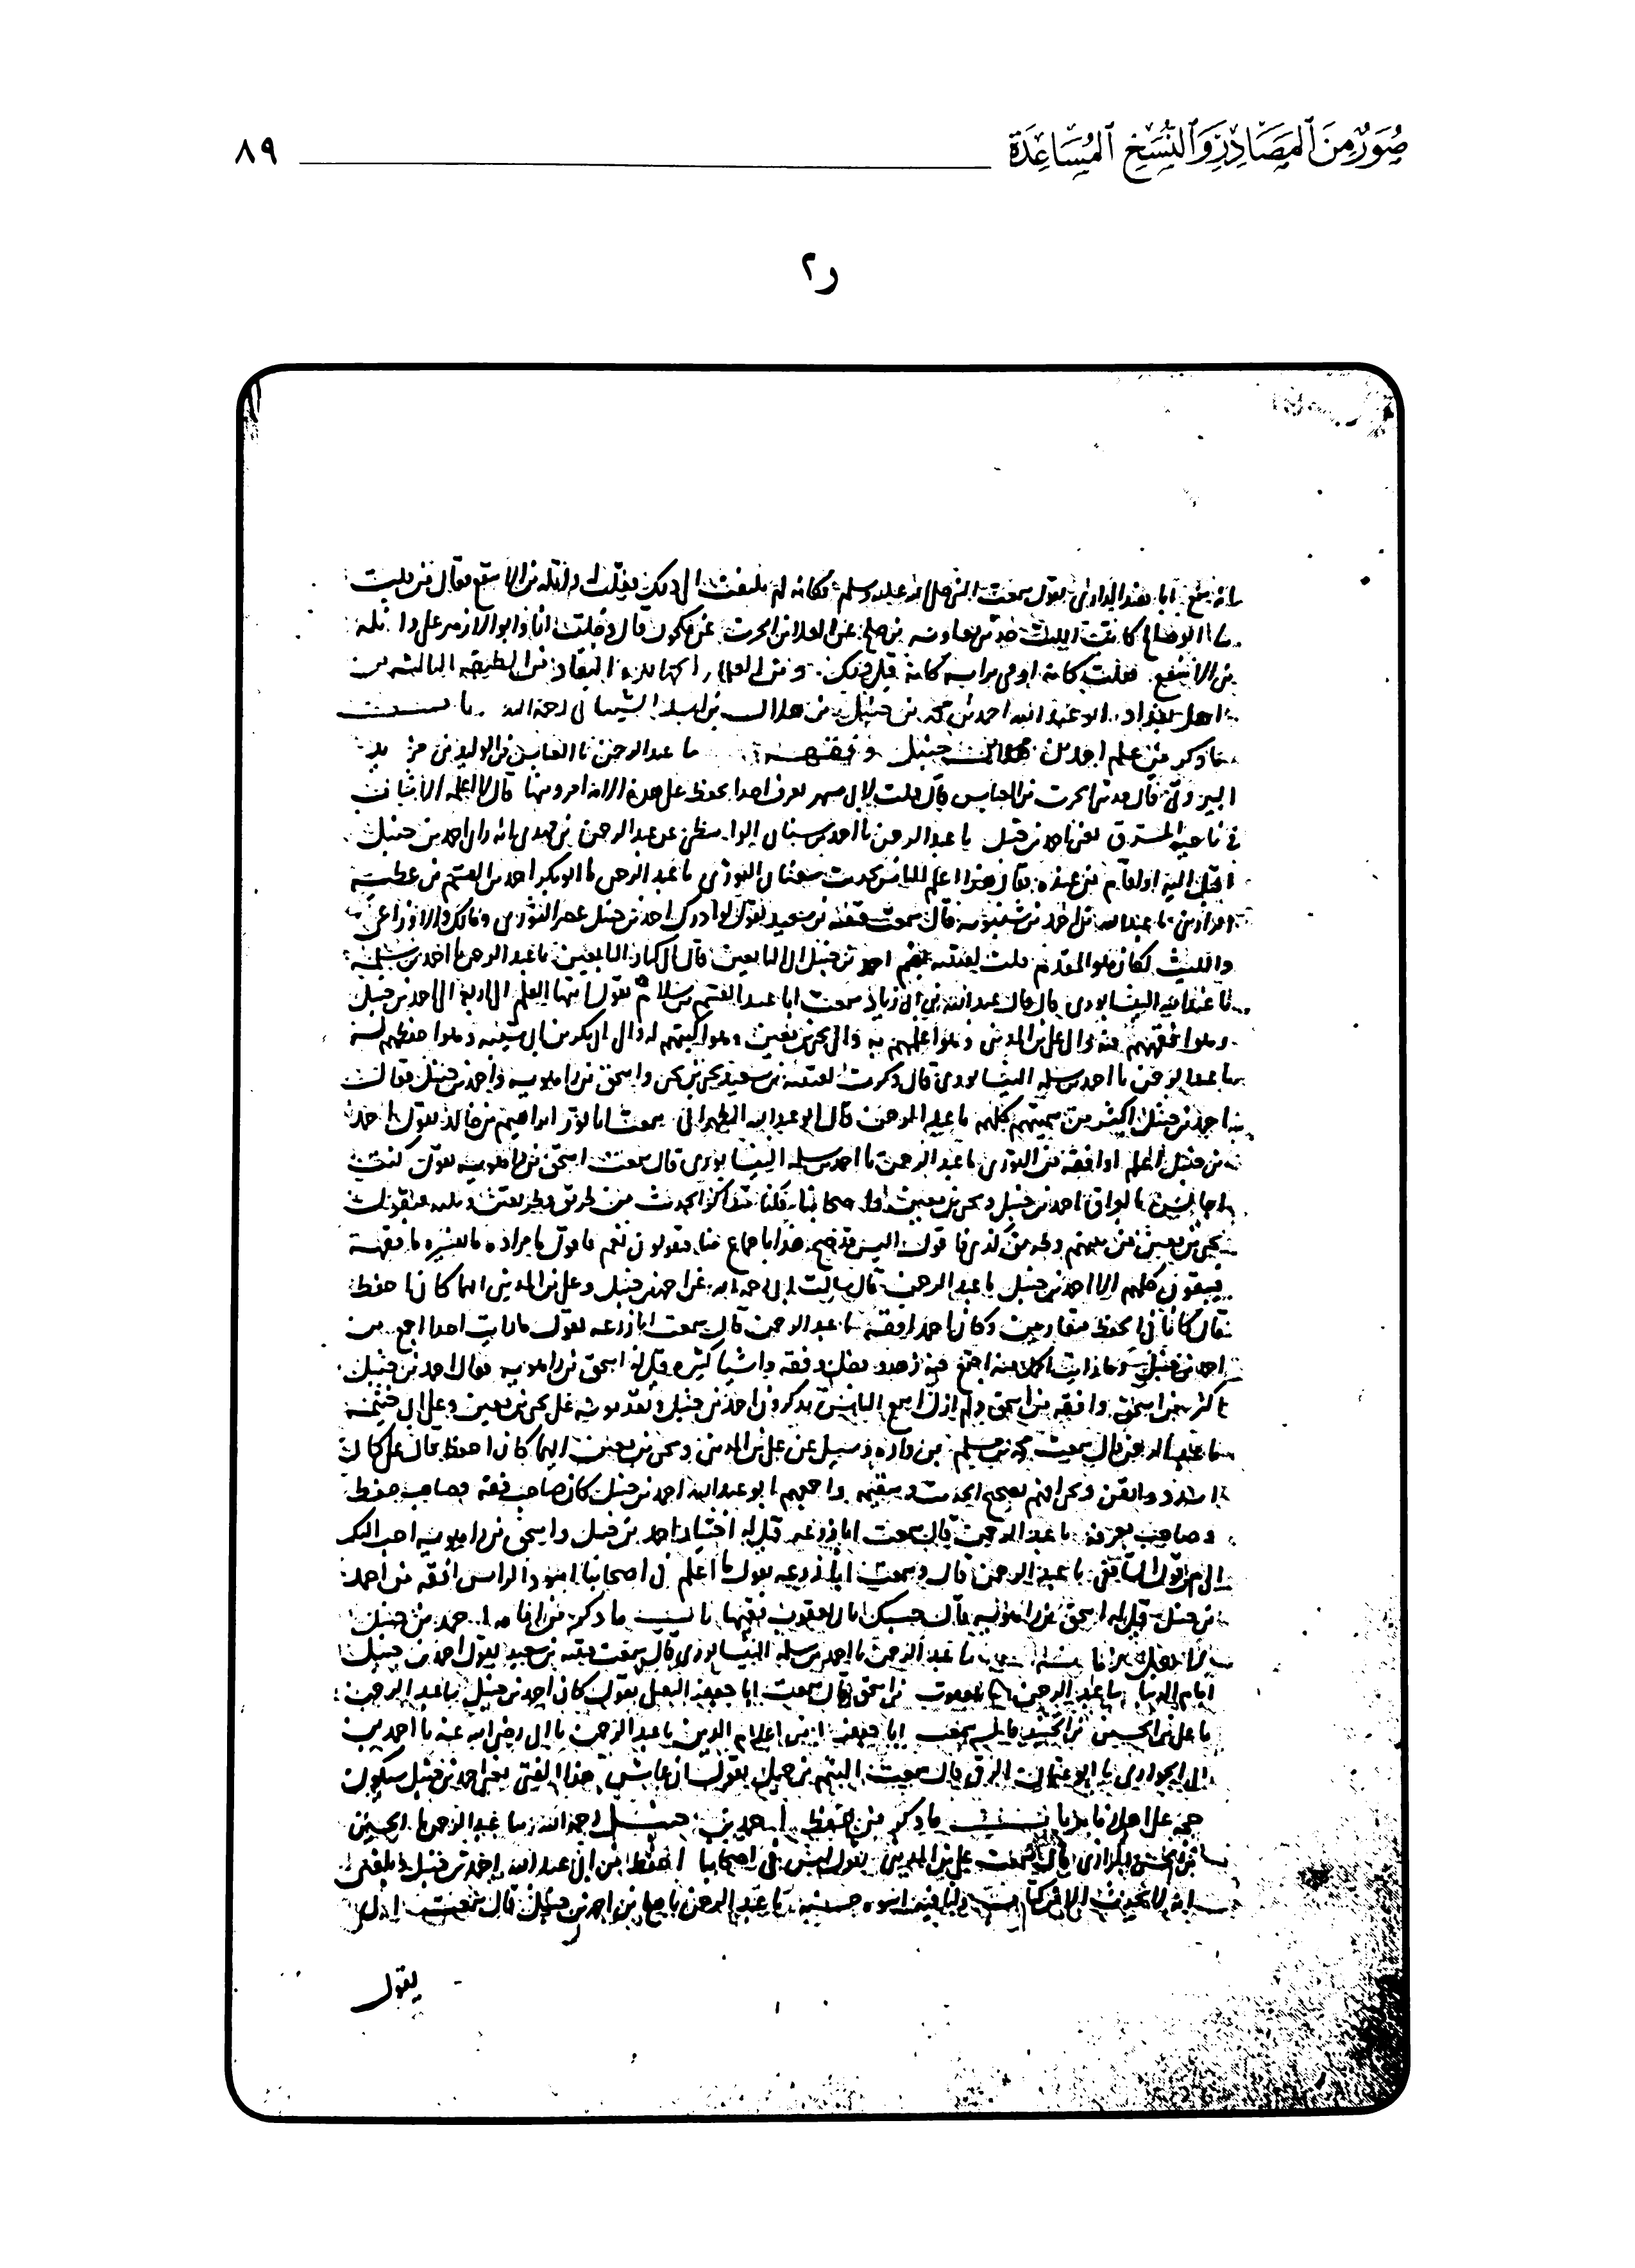 صُوَرٌ مِنَ ٱلمَصَادِرِ وَٱلنُّسَخِ ٱلمُسَاعِدَة
٨٩
ر٢
ابا هند الدارى يقول سمعت النبي صلى الله عليه وسلم فكانه لم يلتفت الى ذلك
ابو صالح كاتب الليث حدثنى معاويه بن صلح عن العلا بن الحرث عن مكحول قال دخلت انا وابو الازهر على واثله
بن الاسقع فقلت
اهل بغداد ابو عبد الله احمد بن محمد بن حنبل بن هلال بن اسد الشيبانى رحمه الله باب
ما ذكر من علم احمد بن محمد بن حنبل وفقهه نا عبد الرحمن نا العباس بن الوليد بن مزيد
البيروتى قال حدثنى الحرث بن العباس قال قلت لابى مسهر تعرف احدا يحفظ على هذه الامة امر دينها قال لا اعلمه الا شاب
فى ناحية المشرق يعنى احمد بن حنبل نا عبد الرحمن نا احمد بن سنان الواسطى عن عبد الرحمن بن مهدى بانه راى احمد بن حنبل
اقبل اليه او قام من عنده فقال هذا اعلم الناس بحديث سفيان الثورى نا عبد الرحمن نا ابو بكر احمد بن القسم بن عطيه
نا عبد الله بن احمد بن شبويه قال سمعت قتيبه بن سعيد يقول لو ادرك احمد بن حنبل عصر الثورى ومالك والاوزاعى
والليث لكان هو المقدم قلت لقتيبه تضم احمد بن حنبل الى التابعين قال الى كبار التابعين نا عبد الرحمن نا احمد بن سلمه
النيسابورى قال قال عبد الله بن ابى زياد سمعت ابا عبيد القسم بن سلام يقول انتهى العلم الى اربعة الى احمد بن حنبل
وهو افقههم فيه والى على بن المدينى وهو اعلمهم به والى يحيى بن معين وهو اكتبهم له والى ابى بكر بن ابى شيبه وهو احفظهم له
نا عبد الرحمن نا احمد بن سلمه النيسابورى قال ذكرت لقتيبه بن سعيد يحيى بن يحيى واسحق بن راهويه واحمد بن حنبل فقال
احمد بن حنبل اكثر من سميتهم كلهم نا عبد الرحمن قال ابو عبد الله الطهرانى سمعت ابا ثور ابراهيم بن خالد يقول احمد
بن حنبل اعلم او افقه من الثورى نا عبد الرحمن نا احمد بن سلمه النيسابورى قال سمعت اسحق بن راهويه يقول كنت
اجالس بالعراق احمد بن حنبل ويحيى بن معين واصحابنا فكنا نتذاكر الحديث من طريق وطريقين وثلثه فيقول
يحيى بن معين من بينهم وطريق كذى فاقول اليس قد صح هذا باجماع منا فيقولون نعم فاقول ما مراده ما تفسيره ما فقهه
فيبقون كلهم الا احمد بن حنبل نا عبد الرحمن قال سالت ابى رحمه الله عن احمد بن حنبل وعلى بن المدينى ايهما كان احفظ
فقال كانا فى الحفظ متقاربين وكان احمد افقه نا عبد الرحمن قال سمعت ابا زرعه يقول ما رايت احدا اجمع من
احمد بن حنبل وما رايت اكمل منه اجتمع فيه زهد وفضل وفقه واشيا كثيره قيل له اسحق بن راهويه فقال احمد بن حنبل
اكثر من اسحق وافقه من اسحق ولم ازل اسمع الناس يذكرون احمد بن حنبل وتقدمونه على يحيى بن معين وعلى ابى خيثمه
نا عبد الرحمن قال سمعت محمد بن مسلم بن واره وسيل عن على بن المدينى ويحيى بن معين ايهما كان احفظ قال على كان
اسرد واتقن ويحيى افهم بصحيح الحديث وسقيمه واجمعهم ابو عبد الله احمد بن حنبل كان صاحب فقه وصاحب حفظ
وصاحب معرفه نا عبد الرحمن قال سمعت ابا زرعه قيل له اختيار احمد بن حنبل واسحق بن راهويه احب اليك
ام قول الشافعى نا عبد الرحمن قال وسمعت ابا زرعه يقول ما اعلم فى اصحابنا اسود الراس افقه من احمد
بن حنبل قيل له اسحق بن راهويه قال حسبك بابى يعقوب فقيها باب ما ذكر من امامة احمد بن حنبل
نا عبد الرحمن نا احمد بن سلمه النيسابورى قال سمعت قتيبه بن سعيد يقول احمد بن حنبل
امام الدنيا نا عبد الرحمن نا يعقوب بن اسحق قال سمعت ابا جعفر النفيلى يقول كان احمد بن حنبل نا عبد الرحمن
نا على بن الحسين بن الجنيد قال سمعت ابا جعفر من اعلام الدين نا عبد الرحمن نا ابى رضى الله عنه نا احمد بن
ابى الحوارى نا ابو عثمان الرقى قال سمعت الهيثم بن جميل يقول ان عاش هذا الفتى يعنى احمد بن حنبل سيكون
حجه على اهل زمانه باب ما ذكر من حفظ احمد بن حنبل رحمه الله نا عبد الرحمن نا الحسين
بن الحسن الرازى قال سمعت على بن المدينى يقول ليس فى اصحابنا احفظ من ابى عبد الله احمد بن حنبل وبلغنى
انه لا يحدث الا من كتاب ولنا فيه اسوه حسنه نا عبد الرحمن نا صلح بن احمد بن حنبل قال سمعت ابى
يقول